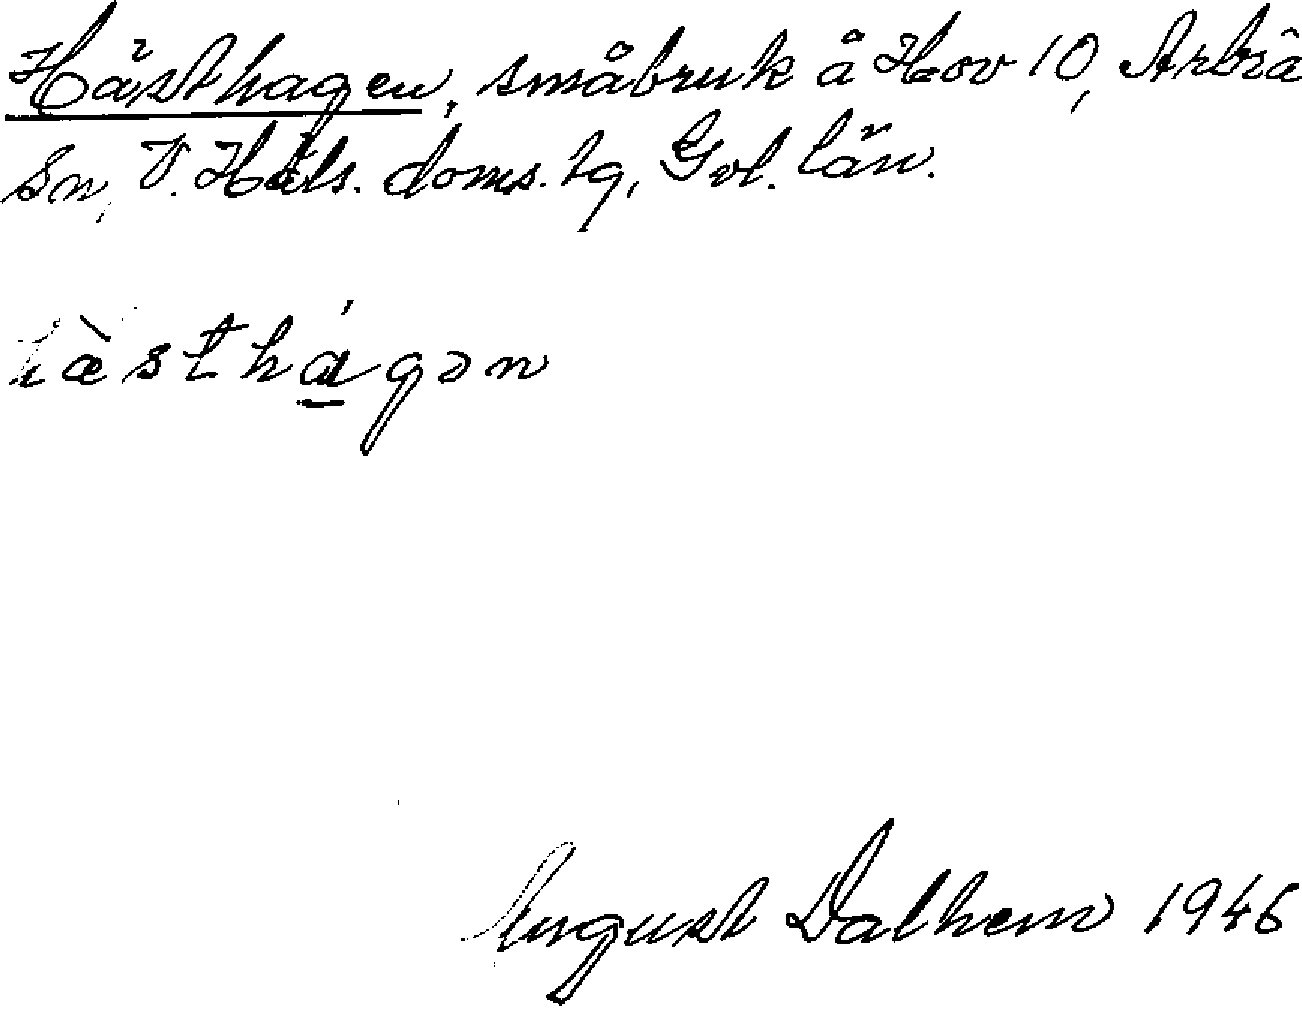 Hästhagen, småbruk å Hov 10, Arbrå
sn, V. Häls. doms. tg, Gvl. län.
hæ̀sthá̱gən
August Dalhem 1946